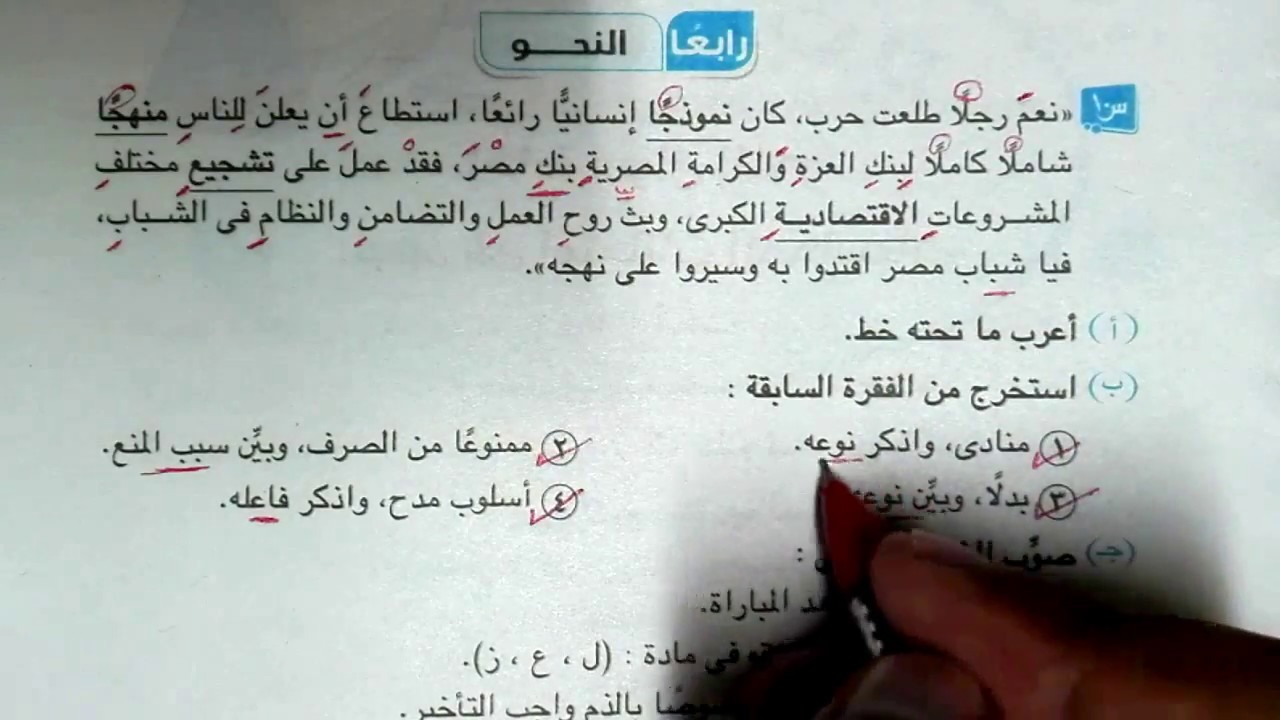 رابعًا النحــو
س١ «نعمَ رجلًا طلعت حرب، كان نموذجًا إنسانيًّا رائعًا، استطاعَ أن يعلنَ لِلناسِ منهجًا
شاملًا كاملًا لِبنكِ العزةِ وَالكرامةِ المصريةِ بنكِ مصْرَ، فقدْ عملَ على تشجيعِ مختلفِ
المشروعاتِ الاقتصاديةِ الكبرى، وبثَّ روحِ العملِ والتضامنِ والنظامِ فى الشبابِ،
فيا شباب مصر اقتدوا به وسيروا على نهجه».
(أ) أعرب ما تحته خط.
(ب) استخرج من الفقرة السابقة :
١ منادى، واذكر نوعه. ٢ ممنوعًا من الصرف، وبيِّن سبب المنع.
٣ بدلًا، وبيِّن نوعه ٤ أسلوب مدح، واذكر فاعله.
(جـ) صوِّب :
المباراة.
فى مادة : (ل ، ع ، ز).
بالذم واجب التأخير.